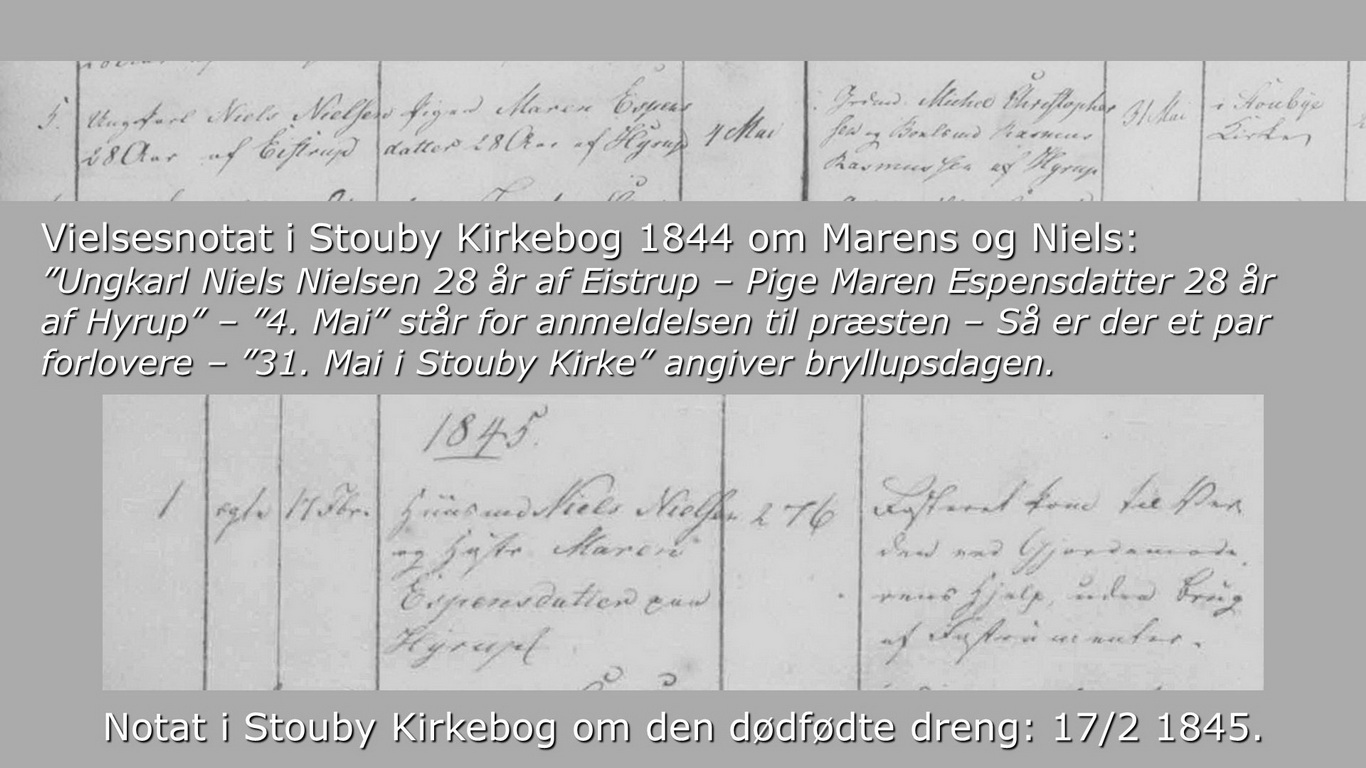 5.
Ungkarl Niels Nielsen
28 Aar af Eistrup
Pigen Maren Espens
datter 28 Aar af Hyrup
4 Mai
Michel Christopher
sen og Rasmus
Rasmussen af Hyrup
31 Mai
i Stoubye
Kirke
Vielsesnotat i Stouby Kirkebog 1844 om Marens og Niels:
”Ungkarl Niels Nielsen 28 år af Eistrup – Pige Maren Espensdatter 28 år
af Hyrup” – ”4. Mai” står for anmeldelsen til præsten – Så er der et par
forlovere – ”31. Mai i Stouby Kirke” angiver bryllupsdagen.
1845.
1
egte
17 Fbr.
Huusmd Niels Nielsen
og Hustr. Maren
Espensdatter paa
Hyrup
276
Fosteret kom til Ver
den ved Gjordemode
rens Hjelp, uden Brug
af Instrumenter.
Notat i Stouby Kirkebog om den dødfødte dreng: 17/2 1845.